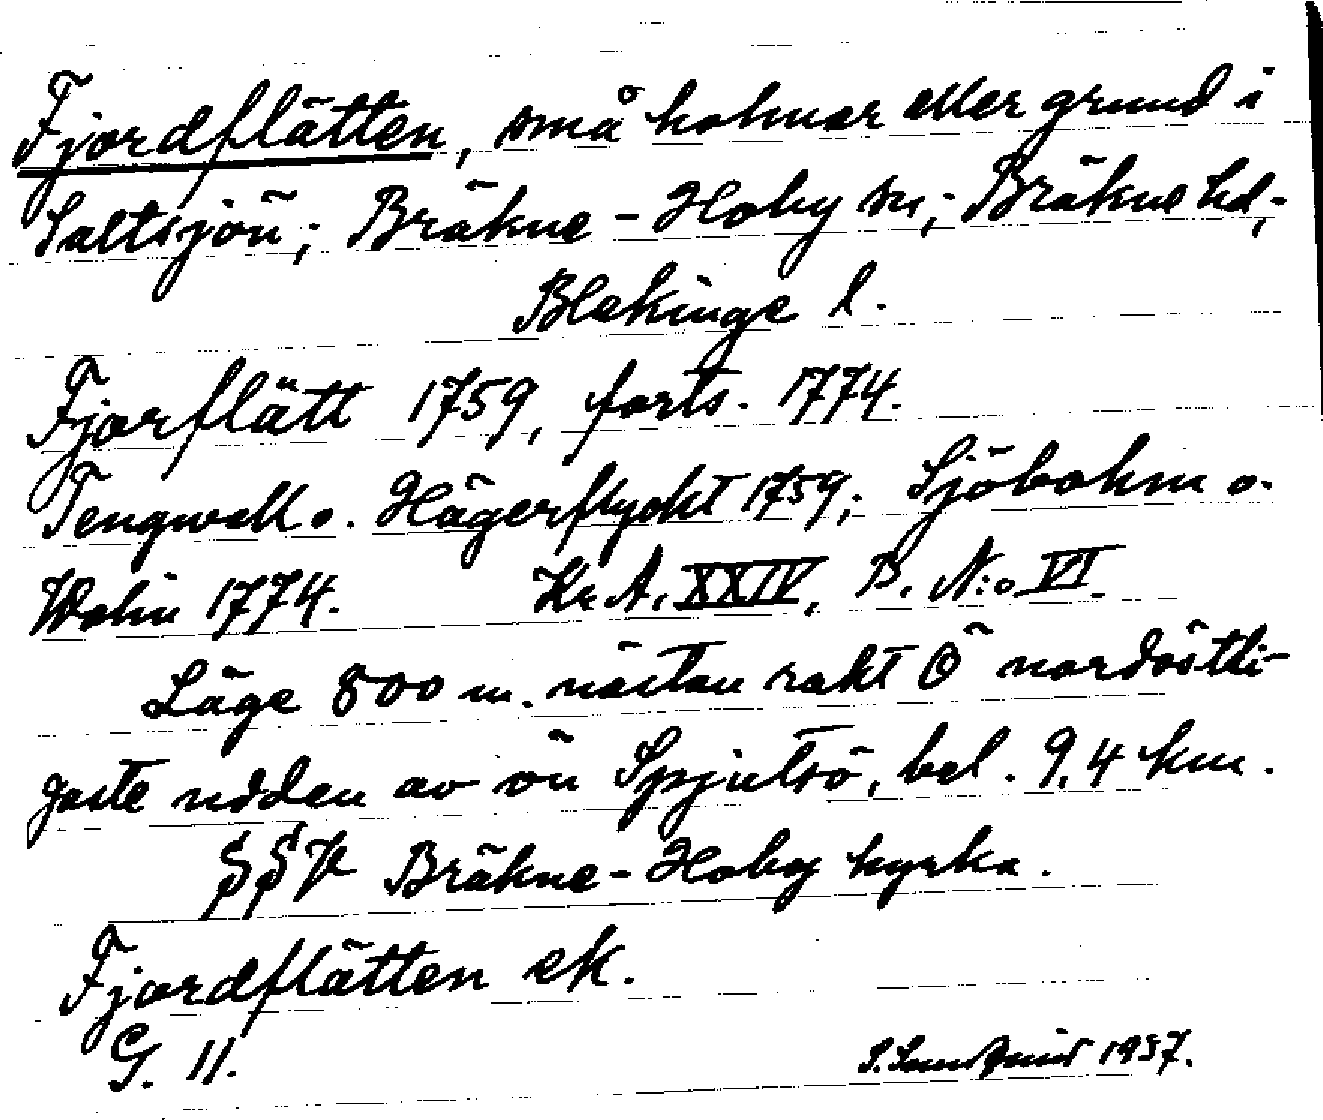 Fjordflätten, små holmar eller grund i
Saltsjön; Bräkne-Hoby sn; Bräkne hd,-
Blekinge l.
Fjorflätt 1759, forts. 1774.
Tengwall o. Hägerflycht 1759; Sjöbohm o.
Wahn 1774. Kr A. XXIV, B. N:o VI.
Läge 800 m. nästan rakt Ö nordöstli-
gaste udden av ön Spjutsö, bel. 9,4 km.
SSV Bräkne-Hoby kyrka.
Fjordflätten ek.
G. 11.
1937.